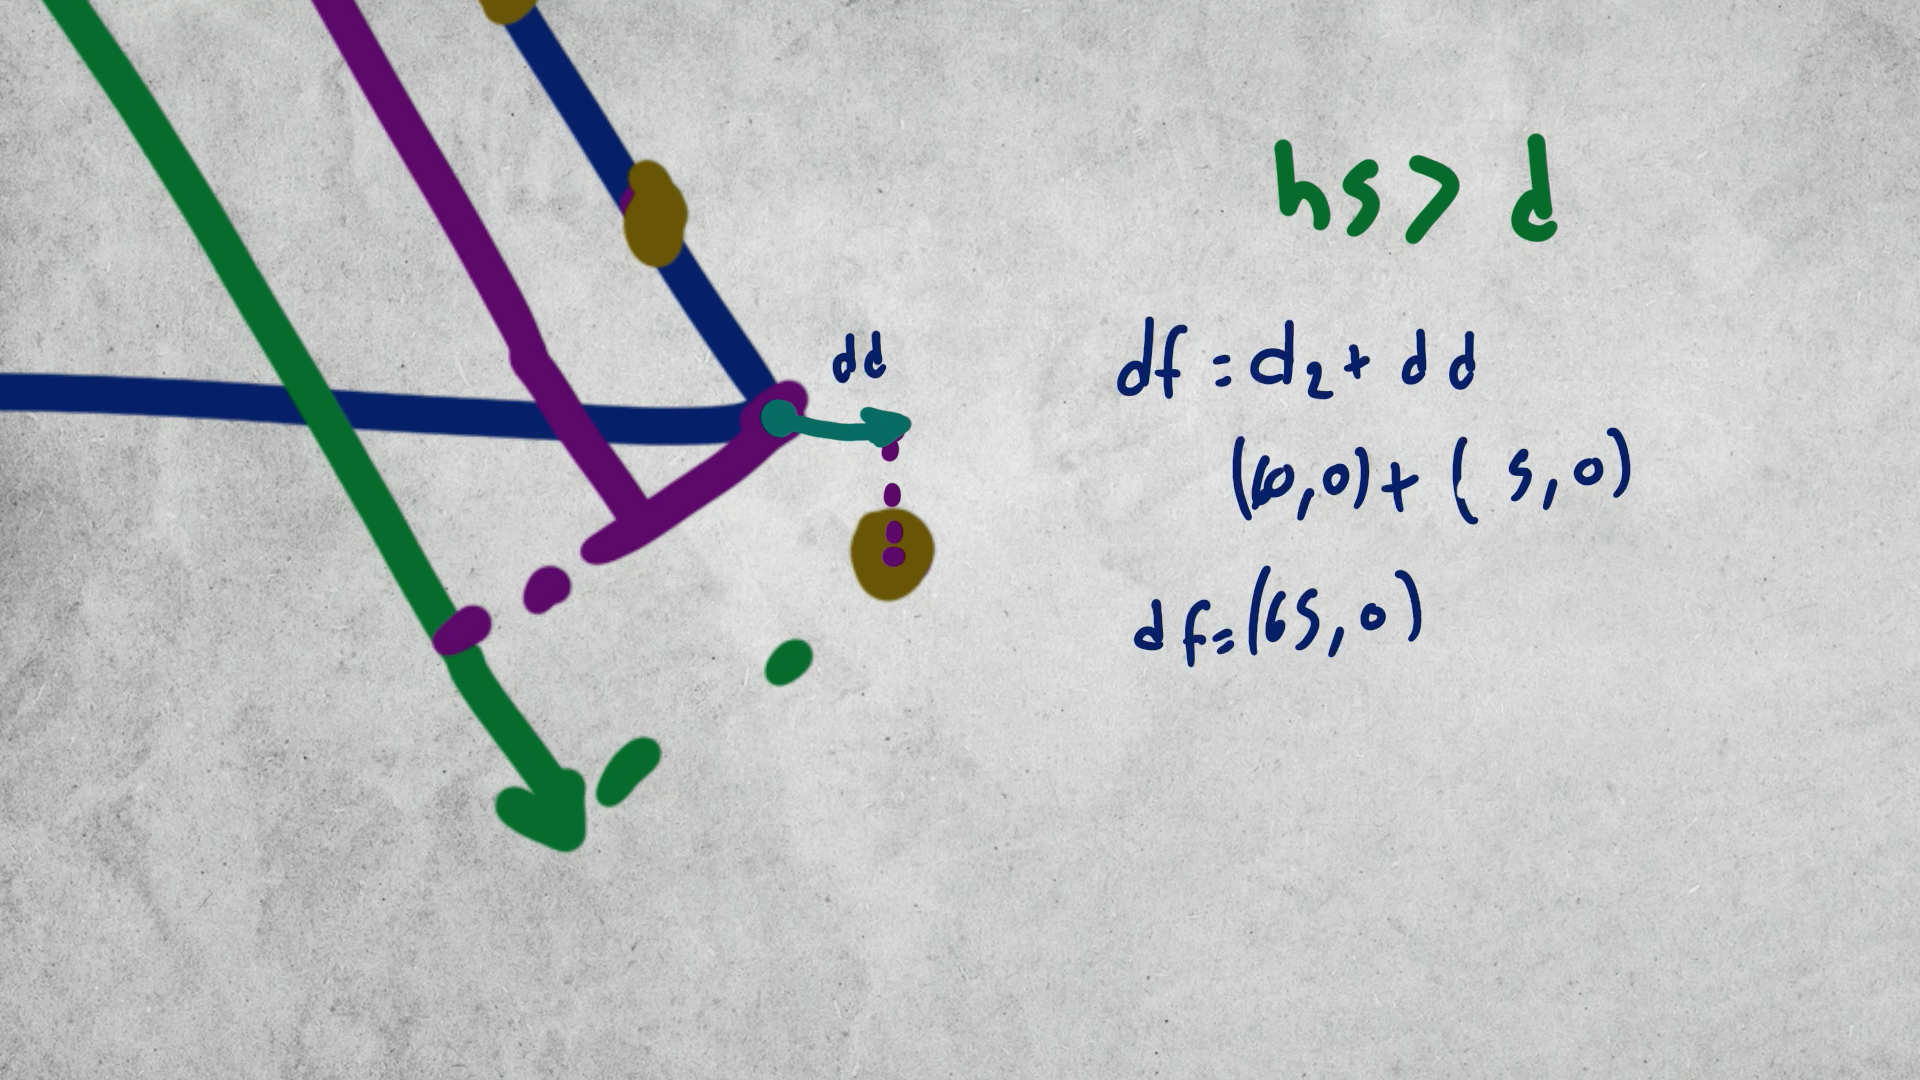 hs > d
dd
df = d2 + dd
(60,0) + (5,0)
df = (65,0)